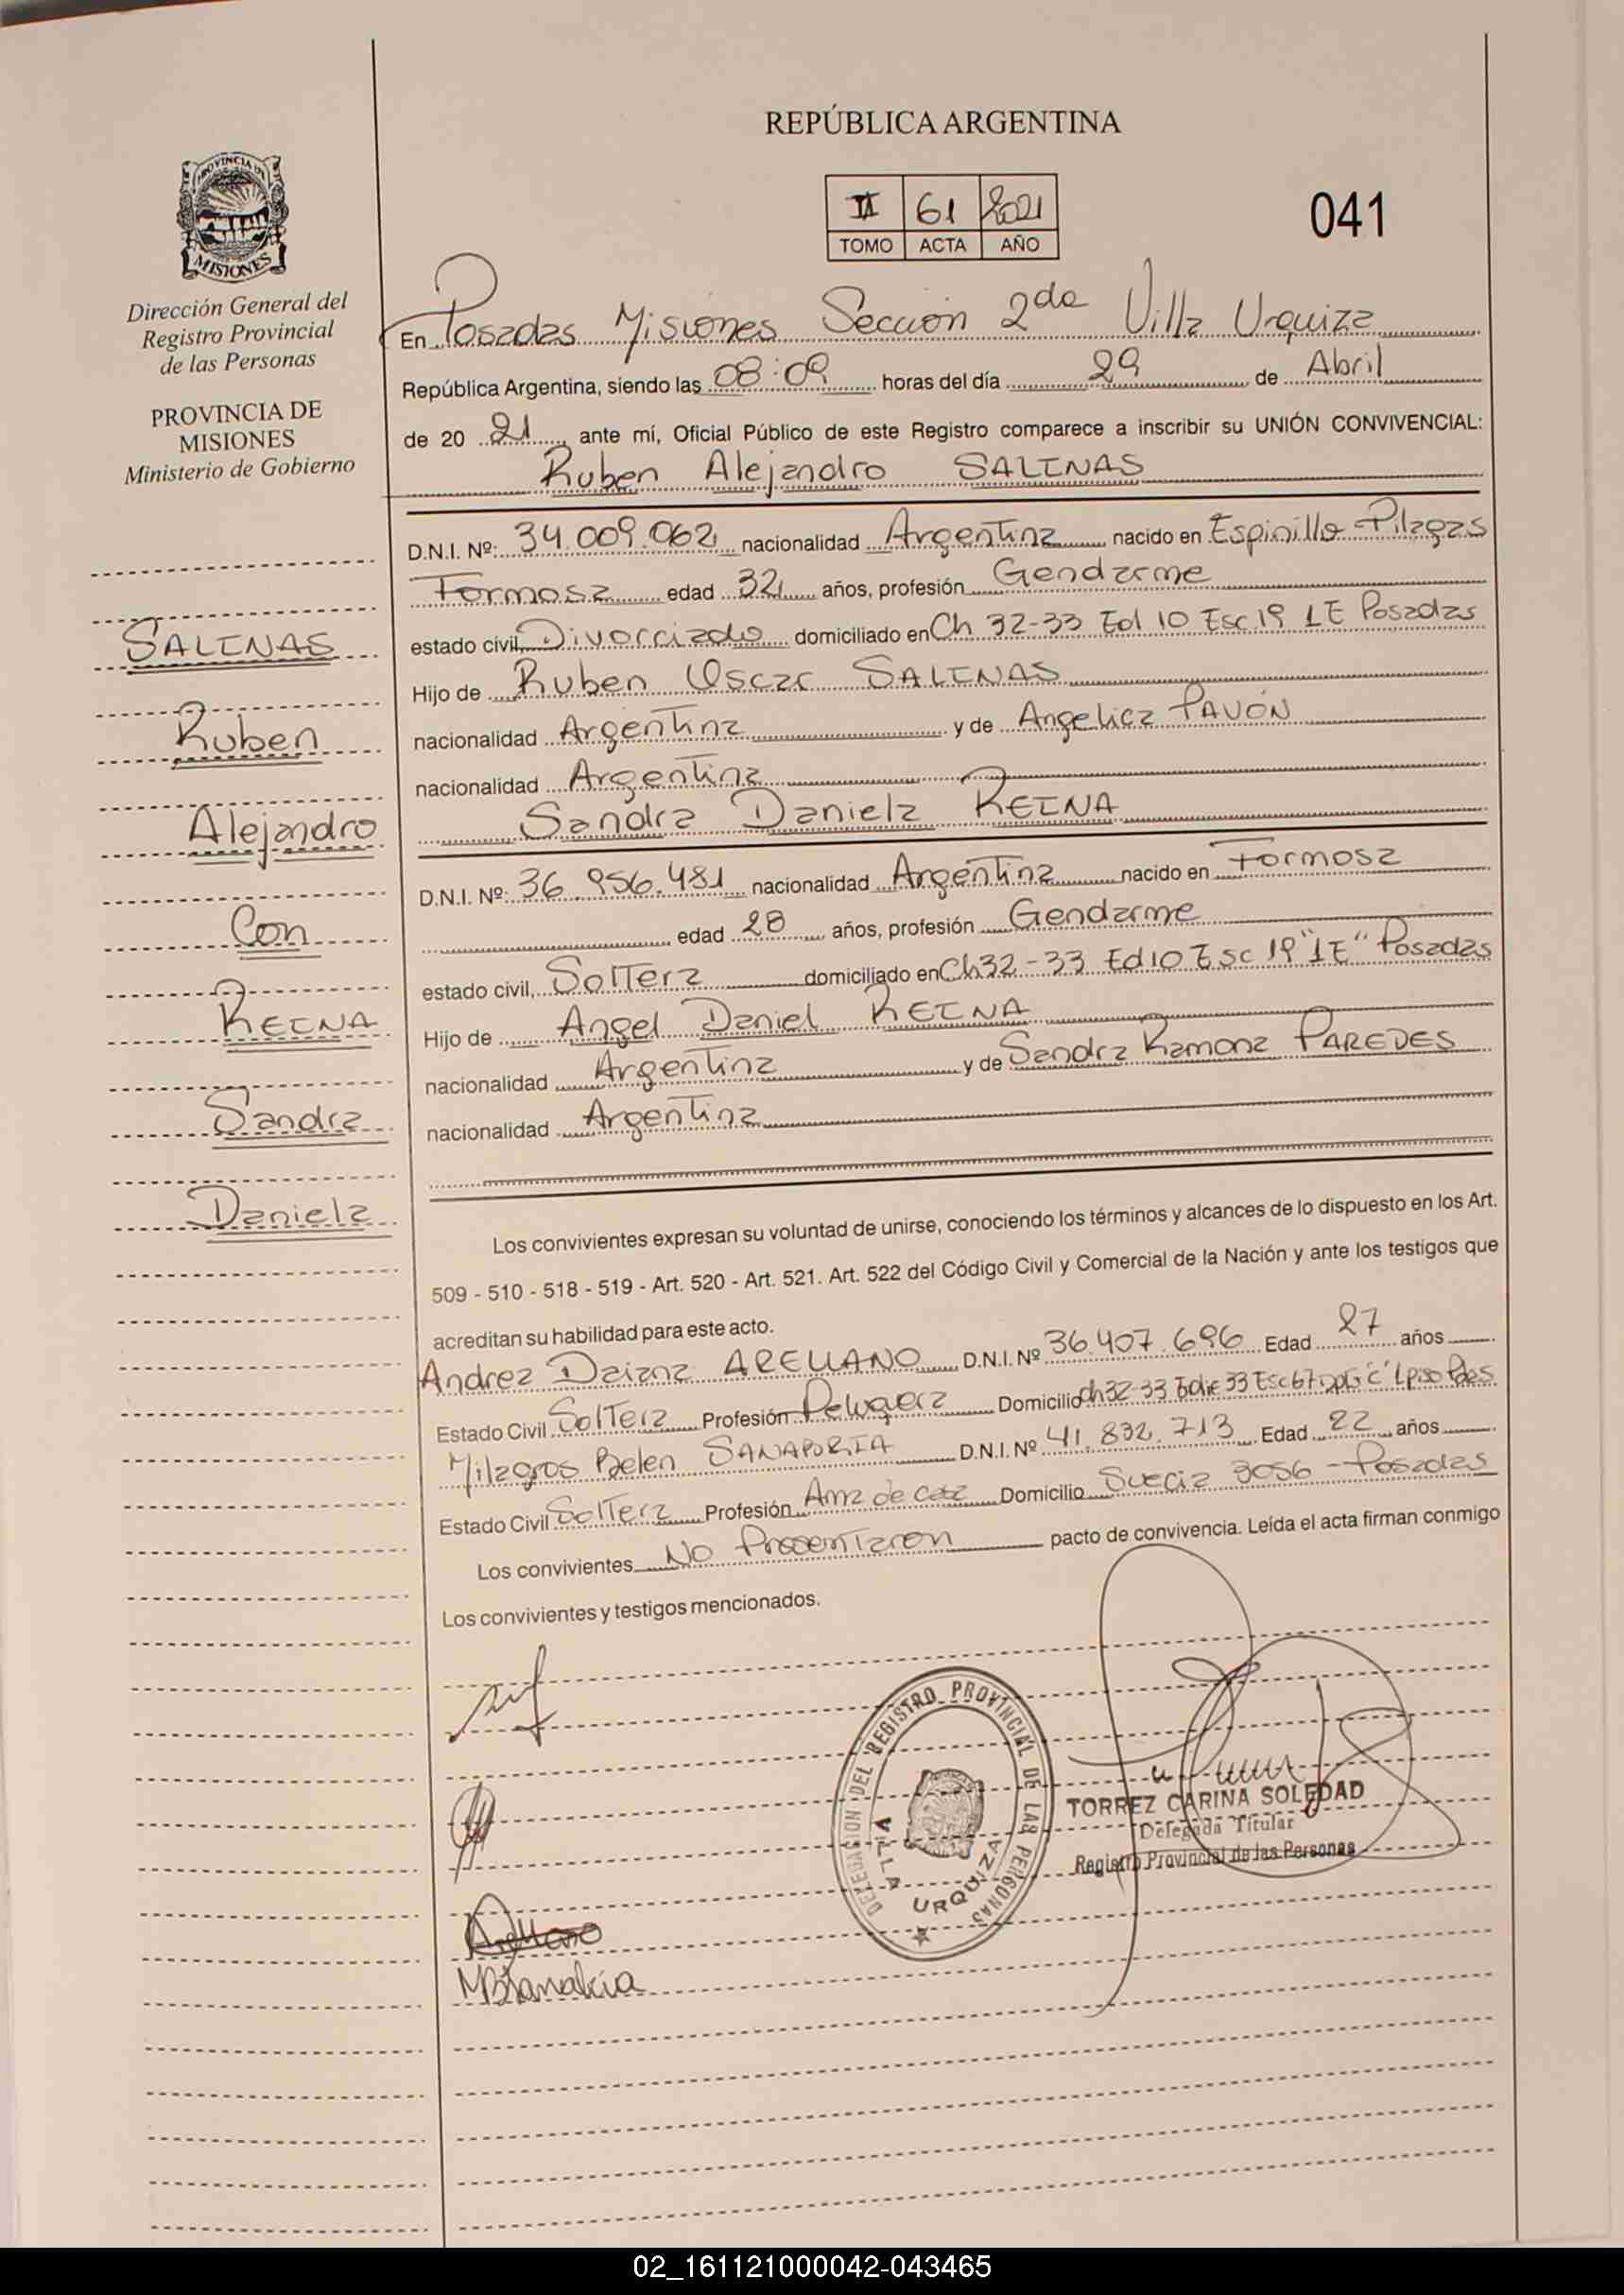 REPÚBLICA ARGENTINA
II 61 2021
TOMO ACTA AÑO
041
PROVINCIA DE
MISIONES
Dirección General del
Registro Provincial
de las Personas
PROVINCIA DE
MISIONES
Ministerio de Gobierno
SALINAS
Ruben
Alejandro
Con
REINA
Sandra
Daniela
En Posadas Misiones Sección 2da Villa Urquiza
República Argentina, siendo las 08:09 horas del día 29 de Abril
de 20 21, ante mí, Oficial Público de este Registro comparece a inscribir su UNIÓN CONVIVENCIAL:
Ruben Alejandro SALINAS
D.N.I. Nº: 34.009.062 nacionalidad Argentina nacido en Espinillo Pilagas
Formosa edad 32 años, profesión Gendarme
estado civil, Divorciado domiciliado en Ch 32-33 Ed 10 Esc 19 1E Posadas
Hijo de Ruben Oscar SALINAS
nacionalidad Argentina y de Angelica PAVÓN
nacionalidad Argentina
Sandra Daniela REINA
D.N.I. Nº: 36.956.481 nacionalidad Argentina nacido en Formosa
edad 28 años, profesión Gendarme
estado civil, Soltera domiciliado en Ch32-33 Ed10 Esc 19 "1E" Posadas
Hijo de Angel Daniel REINA
nacionalidad Argentina y de Sandra Ramona PAREDES
nacionalidad Argentina
Los convivientes expresan su voluntad de unirse, conociendo los términos y alcances de lo dispuesto en los Art.
509 - 510 - 518 - 519 - Art. 520 - Art. 521. Art. 522 del Código Civil y Comercial de la Nación y ante los testigos que
acreditan su habilidad para este acto.
Andrea Daiana ARELLANO D.N.I. Nº 36.407.696 Edad 27 años
Estado Civil Soltera Profesión Peluquera Domicilio Ch32-33 Edif 33 Esc 67 Dpto "C" 1 piso Pdas
Milagros Belen SANABRIA D.N.I. Nº 41.832.713 Edad 22 años
Estado Civil Soltera Profesión Ama de casa Domicilio Suecia 3056 - Posadas
Los convivientes No Presentaron pacto de convivencia. Leída el acta firman conmigo
Los convivientes y testigos mencionados.
DELEGACION DEL REGISTRO PROVINCIAL DE LAS PERSONAS
VILLA URQUIZA
TORREZ CARINA SOLEDAD
Delegada Titular
Registro Provincial de las Personas
Arellano
MBSanabria
02_161121000042-043465